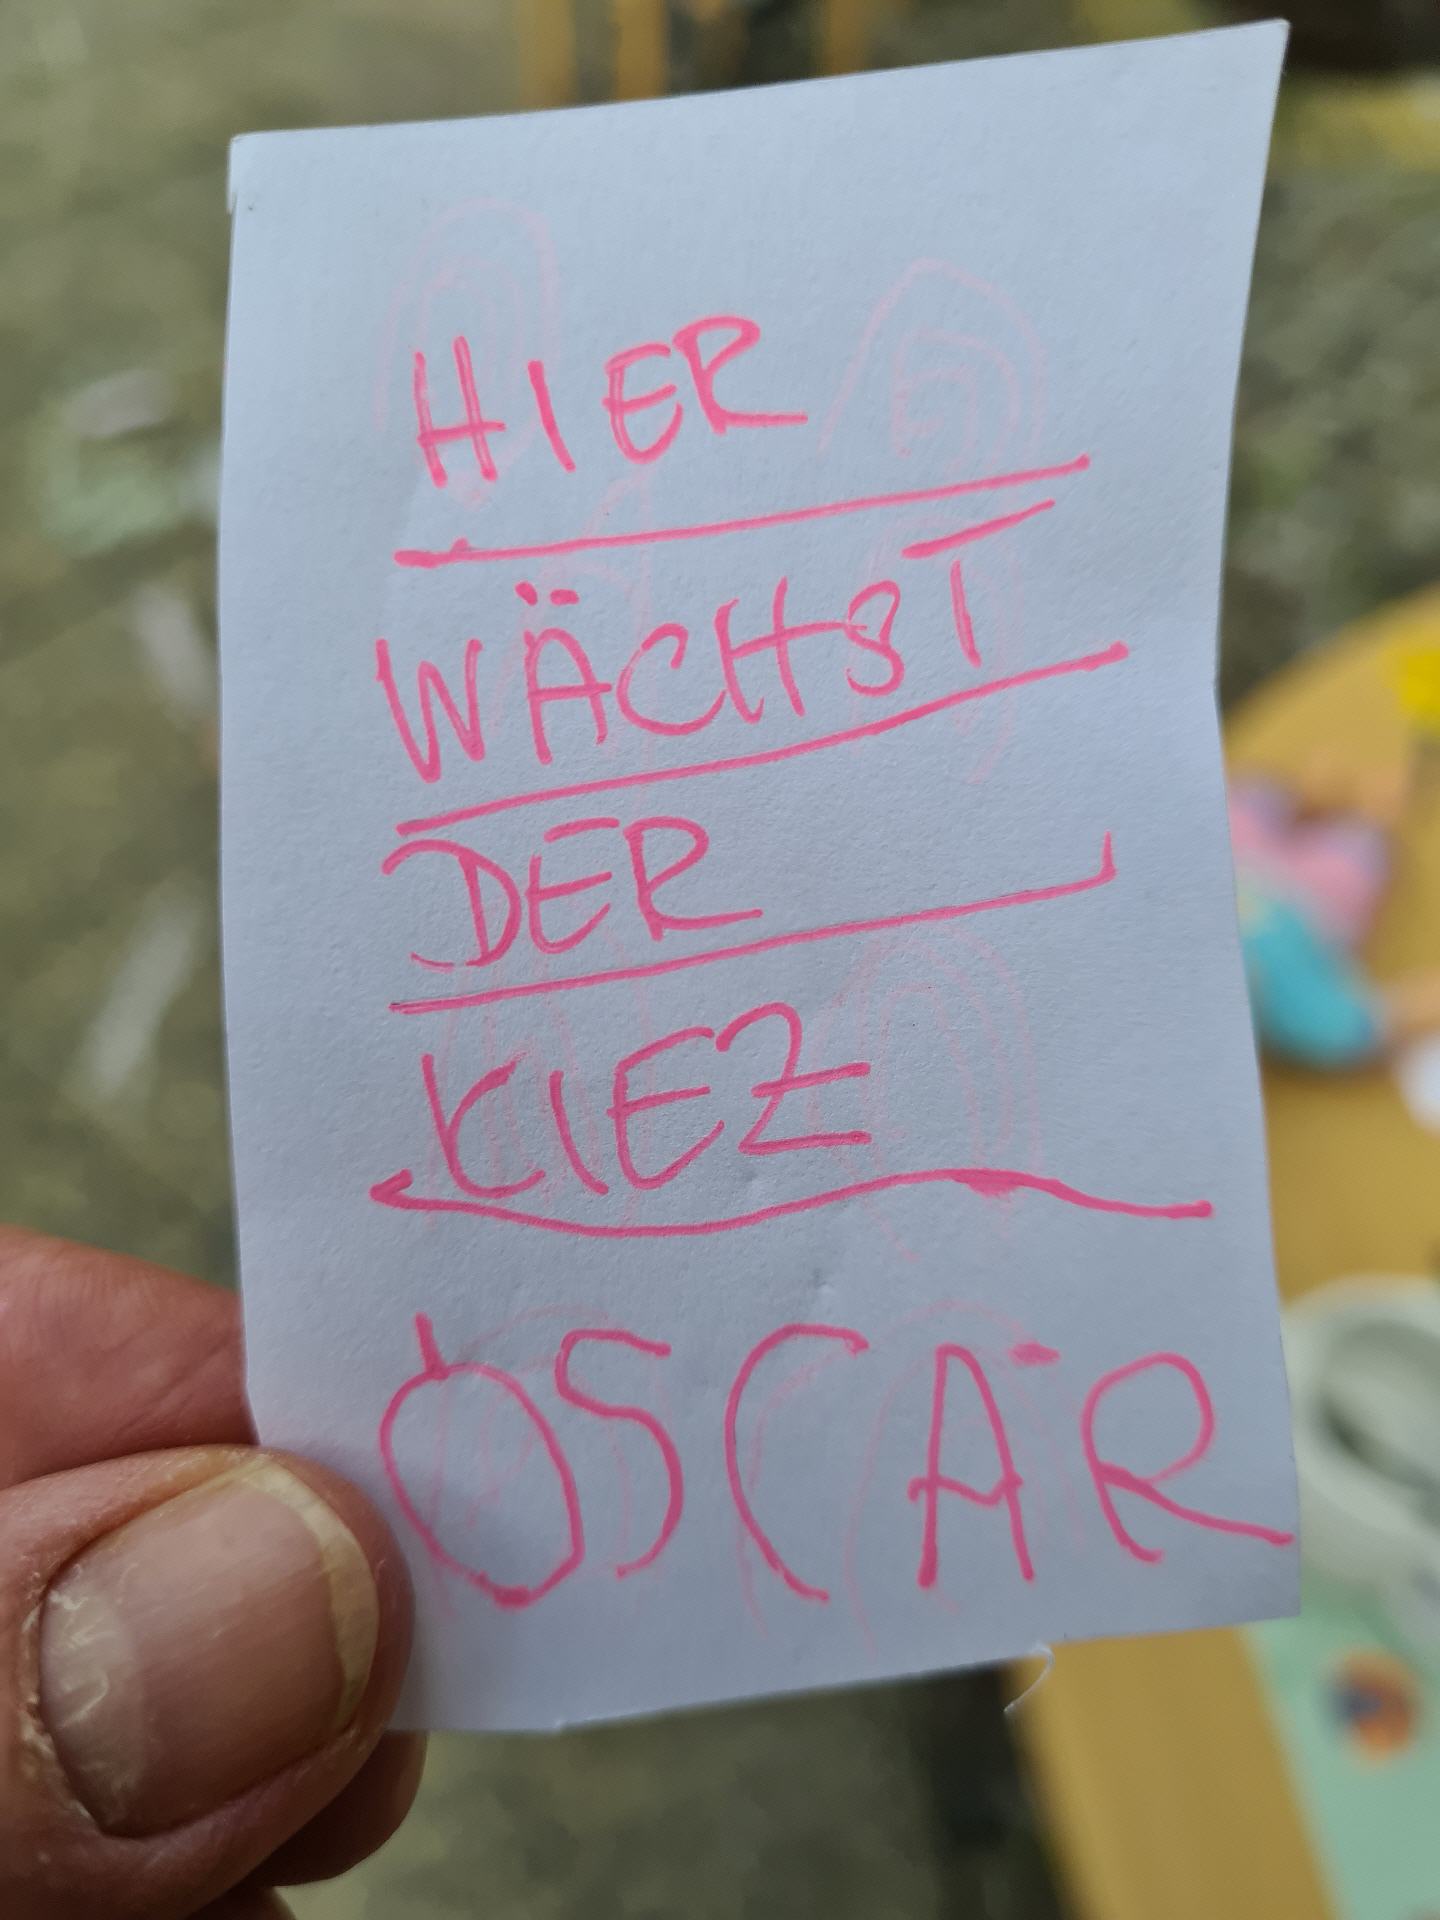 HIER
WÄCHST
DER
KIEZ
OSCAR